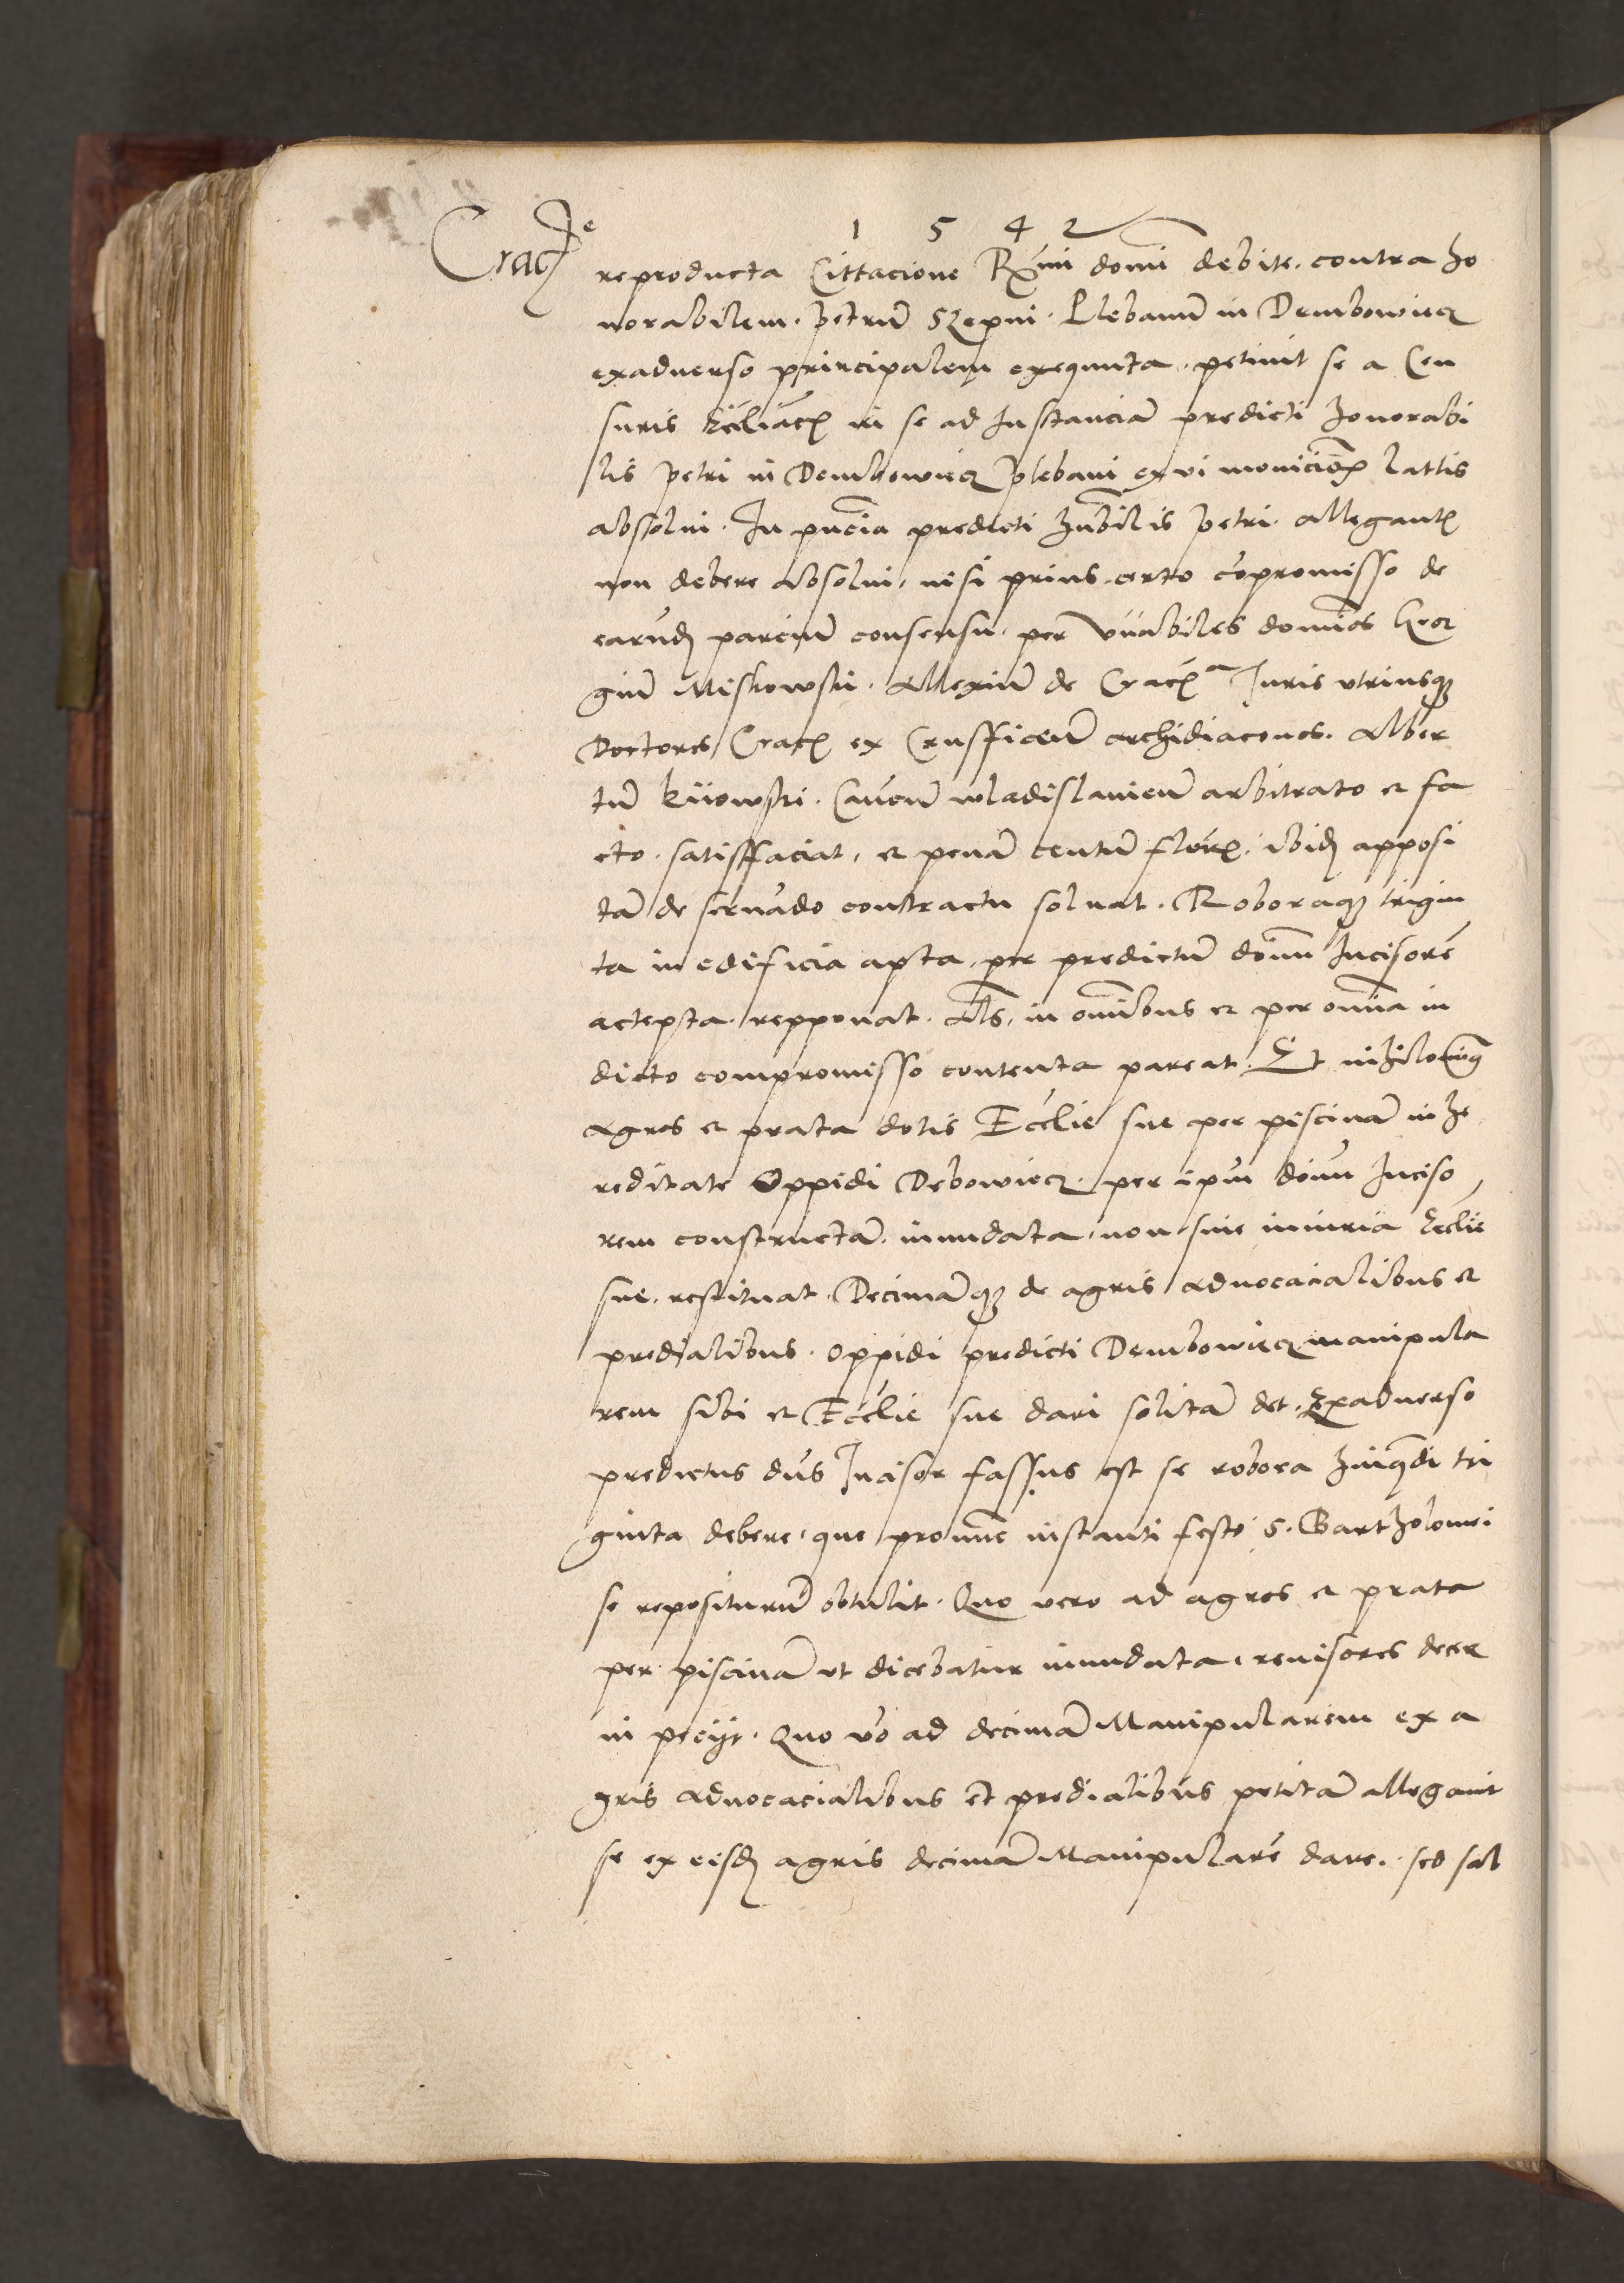 Crac̄e
1 5 4 2
reproducta Cittacione Rx̄mi domī debite. contra ho
norabilem. petrū Szepni. Plebanū in Dembowiecz
exaduerso principalem exequuta. petiuit se a Cen
suris Ecliāc̄ in se ad Instanciā predicti honorabi
lis petri in Dembowiecz plebani ex vi monicion̄ lattis
absolui. In pn̄cia predicti hn̄bilis petri. allegant̄
non debere absolui, nisi prius certo cōpromisso de
earūd parciū consensu. per vn̄abiles domīos Geor
giū Miskowski. Allexiū de Crac̄a Juris vtriusq
Doctores Crac̄ ex Crusfficeū archidiaconos. Alber
tū kijowski. Cancīū wladislauieū arbitrato et fa
cto. satisffaciat, et penā centū floren̄. ibid apposi
tā de seruādo contractu soluat. Roboraq trigin
ta in edificia apta, per predictū domī Incisorē
accepta. repponat. Als, in om̄ibus et per om̄ia in
dicto compromisso contenta pareat. Et nihilominq
agros et prata dotis Ecclie sue per piscinā in he
reditate Oppidi Debowiecz. per ipm̄ dom̄ Inciso
rem constructā. inundata, non sine iniuria Ecclie
sue. restituat. Decimāq de agris aduocacialibus et
predialibus. oppidi predicti Dembowiecz manipula
rem sibi et Ecclie sue dari solitā det. Exaduerso
predictus dn̄s Incisor fassus est se robora hmōdi tri
ginta debere, que pronūc instanti festo S. Bartholomei
se repositurū obtulit. Quo vero ad agros et prata
per piscinā vt dicebatur inundata, reuisores decer
ni peciit. Quo vo ad decimā Manipularem ex a
gris aduocacialibus et predialibus petitā allegauit
se ex eisd agris decimā Manipularē dare. sed sol